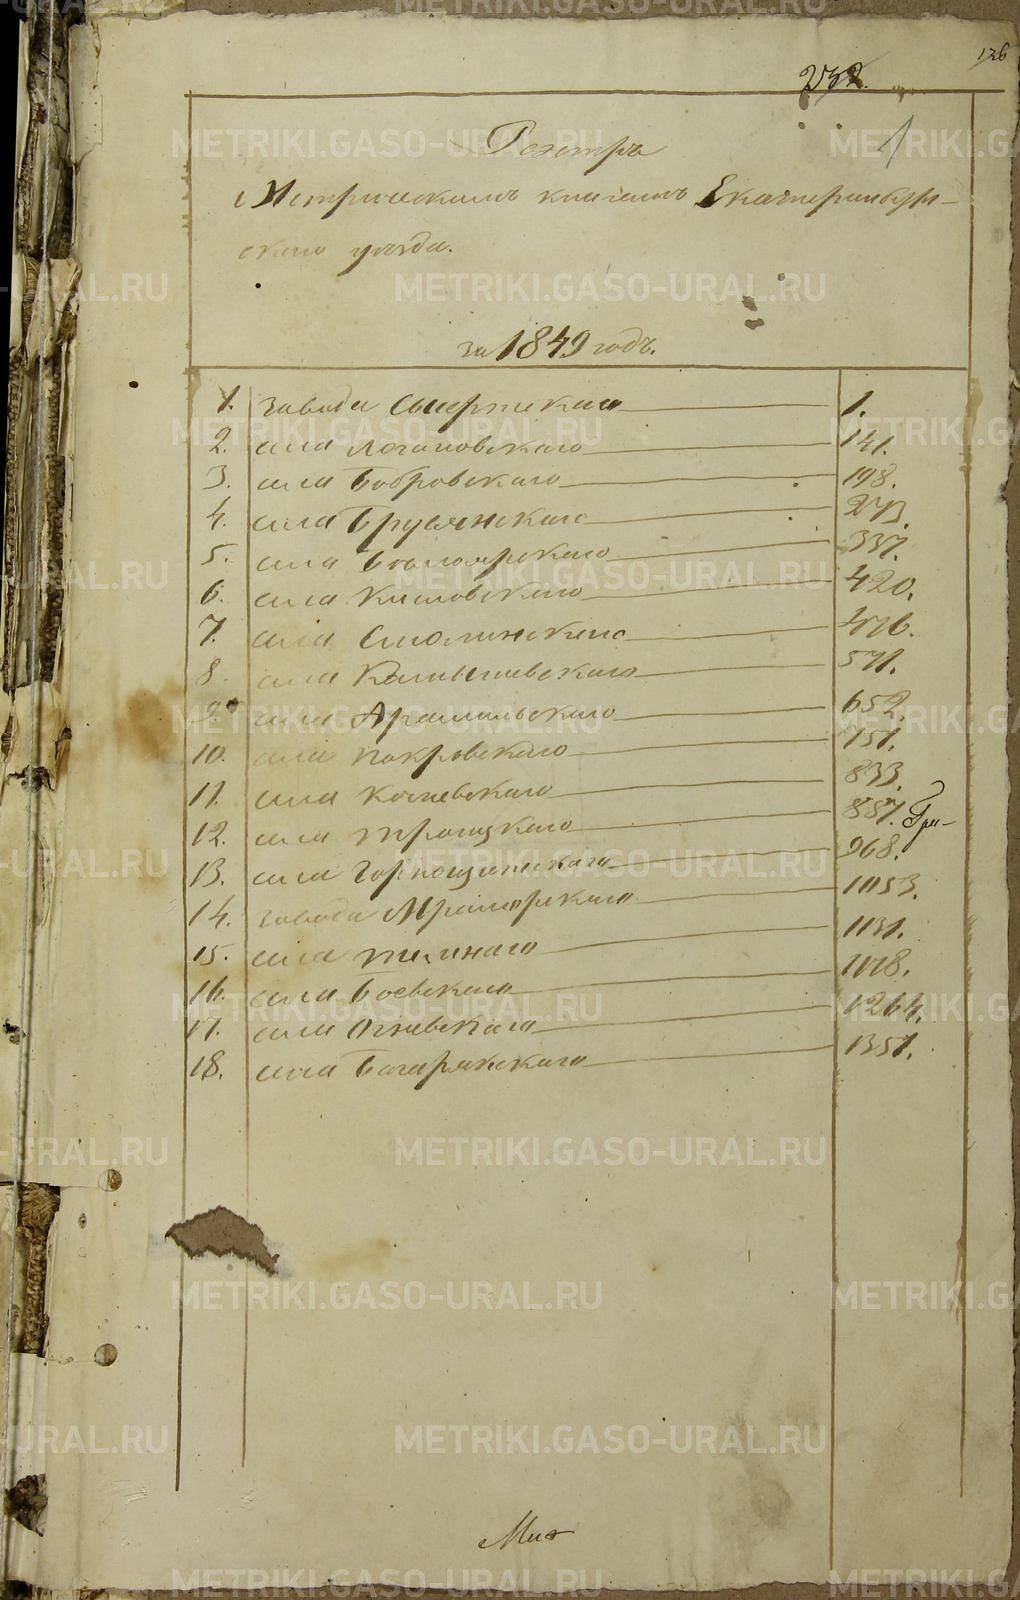 126
232.
1
Реэстръ
Метрическимъ книгамъ Екатеринбург-
скаго уезда.
за 1849 годъ.
1. завода Сысертскаго 1.
2. села Логиновскаго 141.
3. села Бобровскаго 198.
4. села Брусянскаго 273.
5. села Бѣлоярскаго 337.
6. села Кисловскаго 420.
7. села Смолинскаго 476.
8. села Камышевскаго 571.
9. села Арамильскаго 652.
10. села Покровскаго 751.
11. села Кочневскаго 833.
12. села Троицкаго 887. Гри-
13. села Горнощитскаго 968.
14. завода Мраморскаго 1053.
15. села 1131.
16. села Боевскаго 1178.
17. села Огневскаго 1264.
18. села Багарякскаго 1351.
METRIKI.GASO-URAL.RU